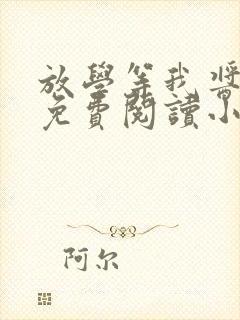 放學等我 酱
免費閱讀小
阿尔